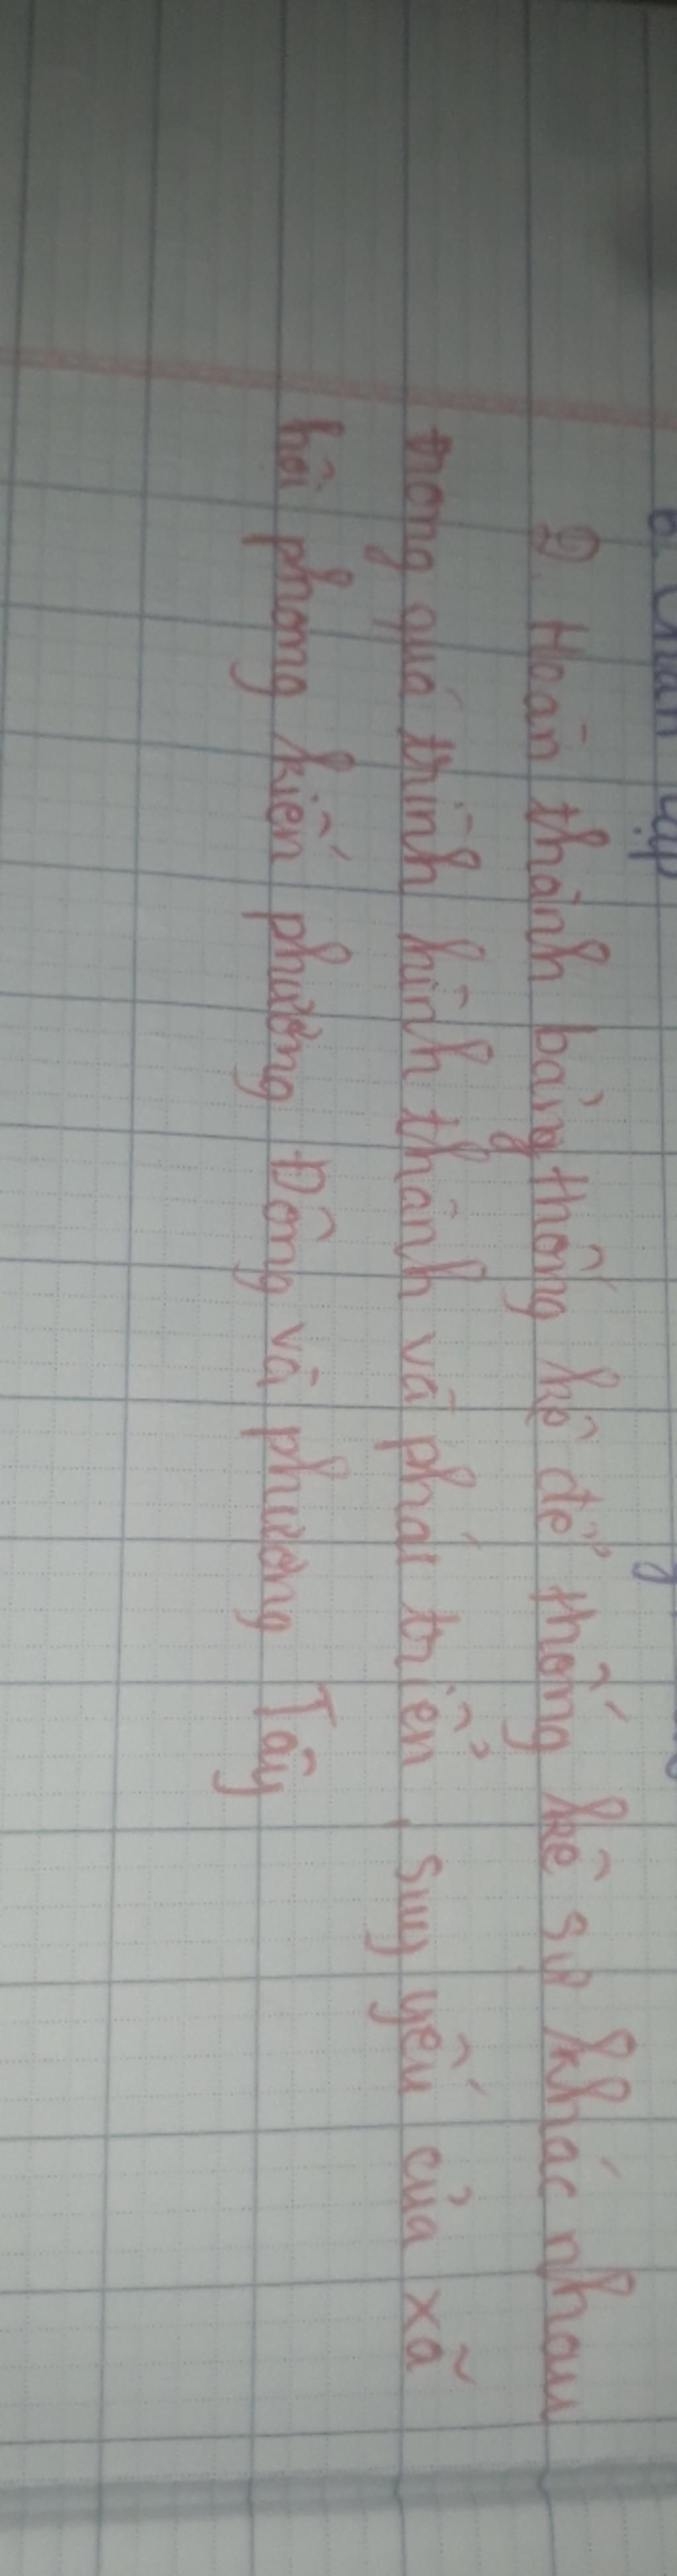 2. Hoàn thành bảng thống kê để thống kê sự khác nhau
trong quá trình hình thành và phát triển, suy yếu của xã
hội phong kiến phương Đông và phương Tây